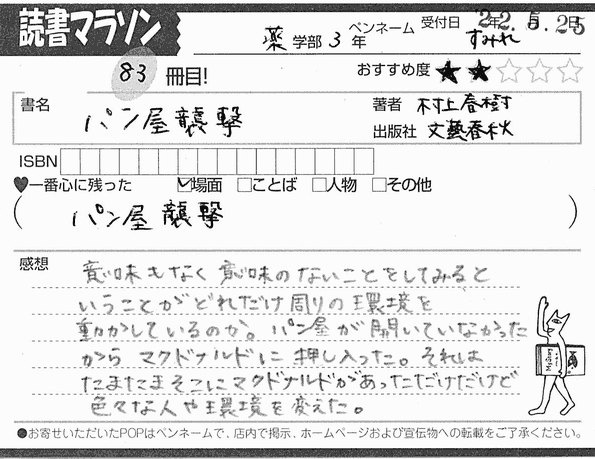 読書マラソン
薬 学部 3 年
ペンネーム すみれ
受付日
83 冊目!
おすすめ度 ★★☆☆☆
書名 パン屋襲撃
著者 村上春樹
出版社 文藝春秋
ISBN
♥一番心に残った ☑場面 □ことば □人物 □その他
( パン屋襲撃 )
感想
意味もなく意味のないことをしてみると
いうことがどれだけ周りの環境を
動かしているのか。パン屋が開いていなかった
から マクドナルドに押し入った。それは
たまたまそこにマクドナルドがあっただけだけど
色々な人や環境を変えた。
●お寄せいただいたPOPはペンネームで、店内で掲示、ホームページおよび宣伝物への転載をご了承ください。